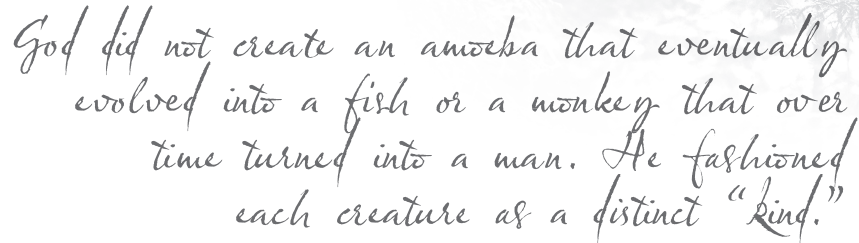 God did not create an amoeba that eventually
evolved into a fish or a monkey that over
time turned into a man. He fashioned
each creature as a distinct “kind.”